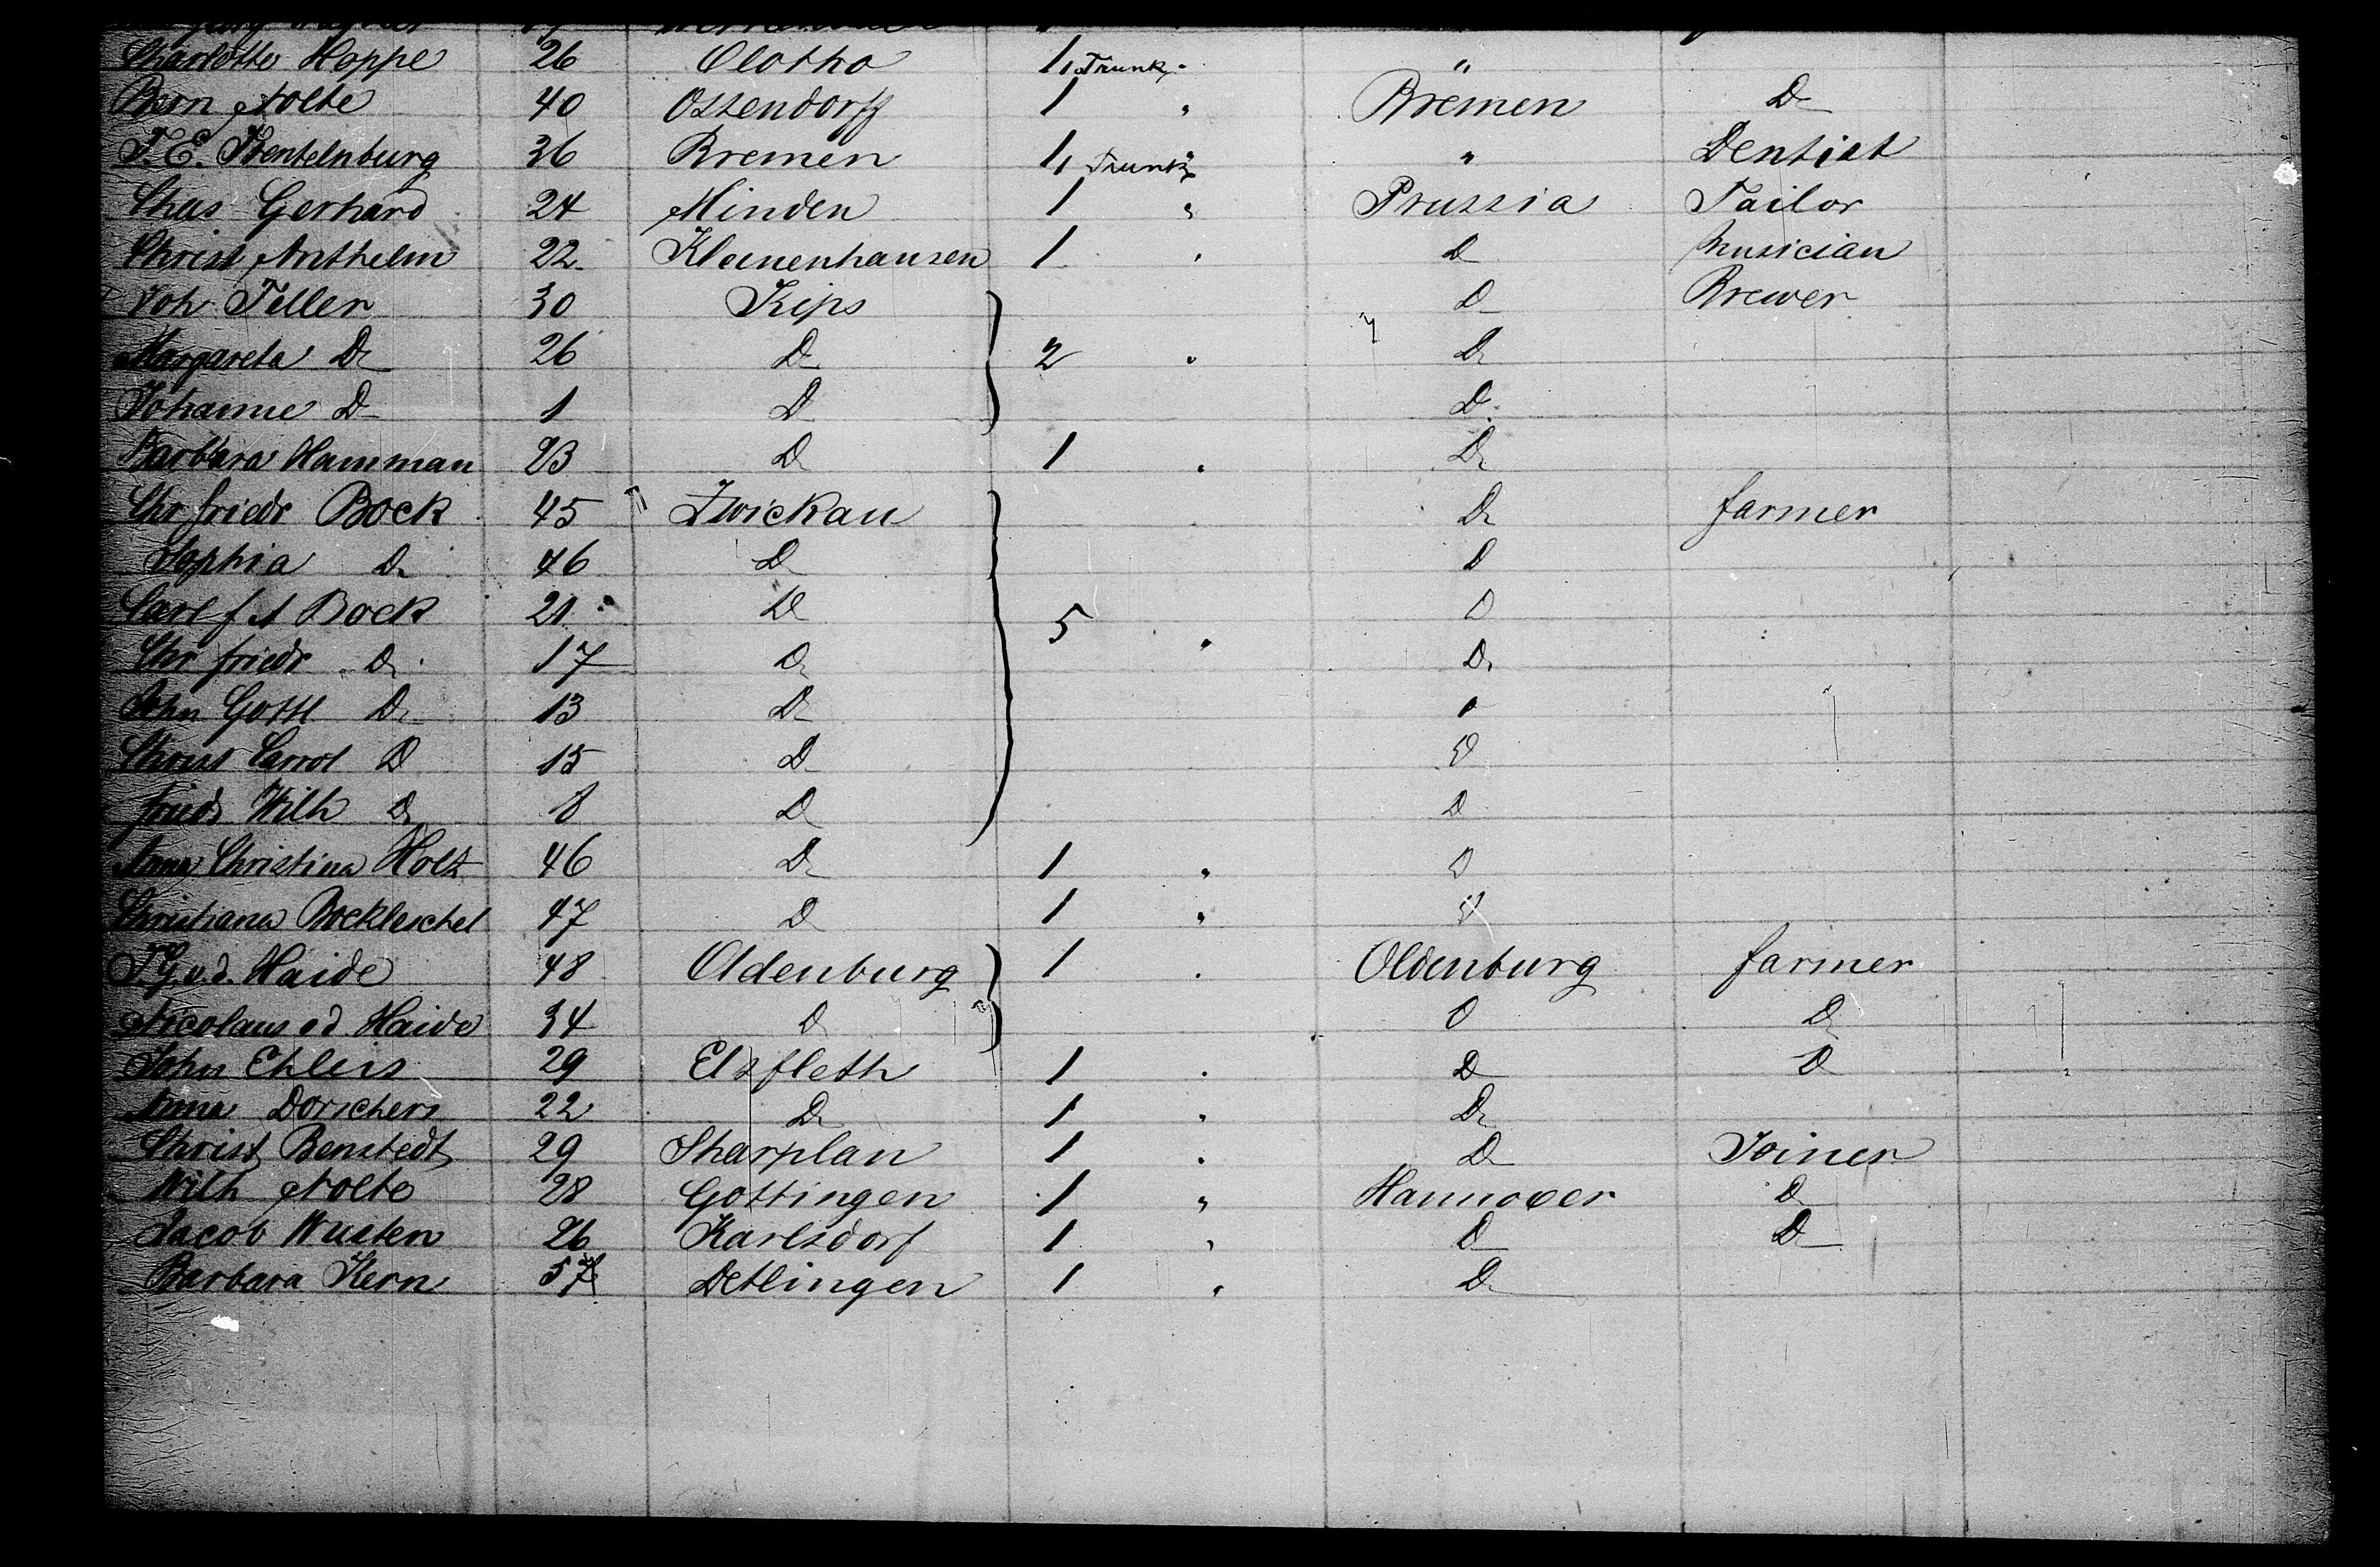 Charlotte Hoppe 26 Olotho 1, Trunk "
Bern Nolte 40 Ostendorff 1 " Bremen D
T. E. Wentelnburg 36 Bremen 1, Trunk " Dentist
Chas Gerhard 24 Minden 1 " Prussia Tailor
Christ Anthelm 22 Kleinenhausen 1 " D Musician
Joh Teller 30 Kips D Brewer
Margareta D 26 D 2 " D
Johanne D 1 D D
Barbara Hamman 23 D 1 " D
Chr friedr Bock 45 Zwickau D farmer
Sophia D 46 D D
Carl f A Bock 21 D 5 " D
Chr friedr D 17 D D
John Gottl D 13 D
Christ Carrol D 15 D D
friedr Wilh D 8 D D
Anna Christina Holz 46 D 1 " D
Christiana Bockleschel 47 D 1 " D
v. d. Haide 48 Oldenburg 1 " Oldenburg farmer
Nicolaus v d Haide 34 D D D
John Ehlers 29 Elsfleth 1 " D D
Anna Dorschers 22 D 1 " D
Christ Benstedt 29 Sharplan 1 " D Joiner
Wilh Nolte 28 Gottingen 1 " Hannover D
Jacob Wusten 26 Karlsdorf 1 " D D
Barbara Kern 57 Detlingen 1 " D